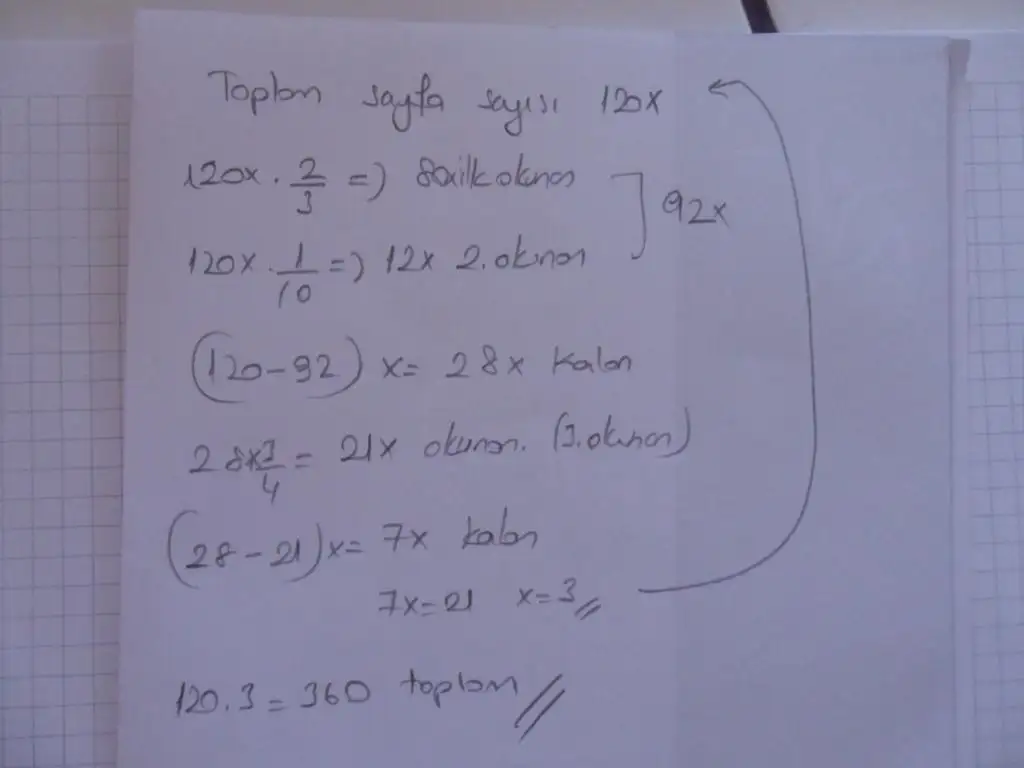 Toplam sayfa sayısı 120x
120x · 2/3 => 80x ilk okunan
92x
120x · 1/10 => 12x 2. okunan
(120-92) x = 28x kalan
28x 3/4 = 21x okunan. (3. okunan)
(28-21)x = 7x kalan
7x=21 x=3//
120.3=360 toplam //